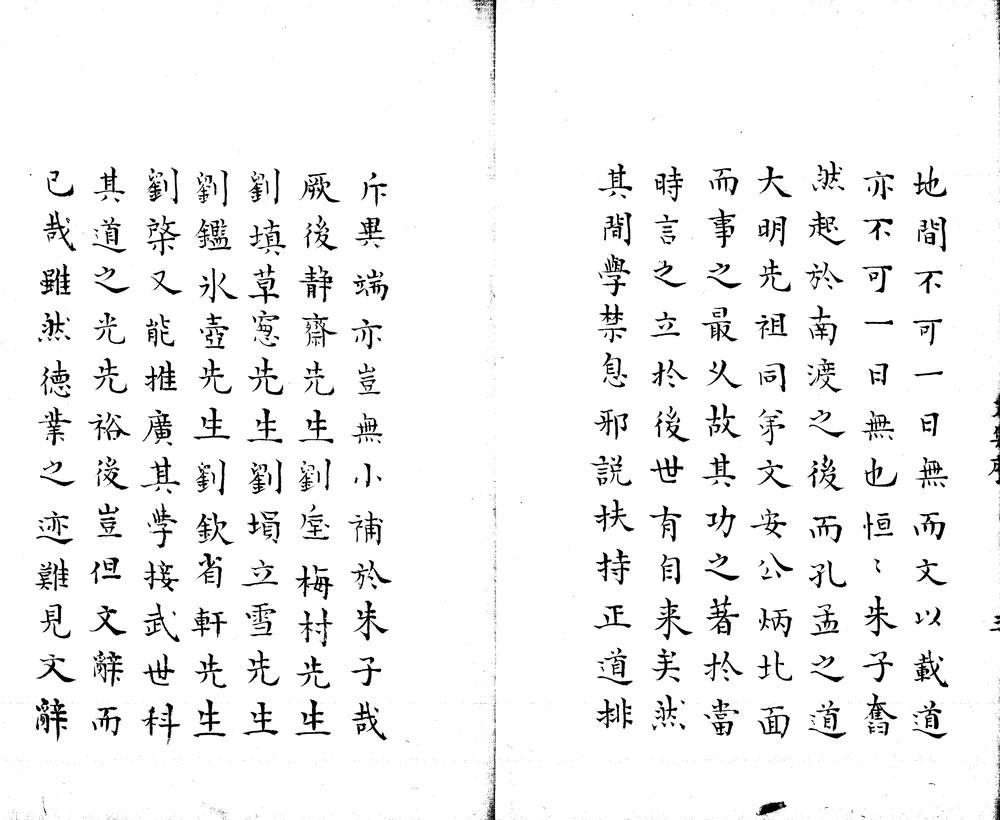 地間不可一日無而文以載道
亦不可一日無也恒〻朱子奮
然起於南渡之後而孔孟之道
大明先祖同苐文安公炳北面
而事之最乆故其功之著於當
時言之立於後世有自来矣然
其間學禁息邪説扶持正道排
斥異端亦豈無小補於朱子哉
厥後静齋先生劉  梅村先生
劉塡草窻先生劉塤立雪先生
劉鑑氷壺先生劉欽省軒先生
劉棨又能推廣其學接武世科
其道之光先裕後豈但文辭而
已哉雖然德業之迹難見文辭